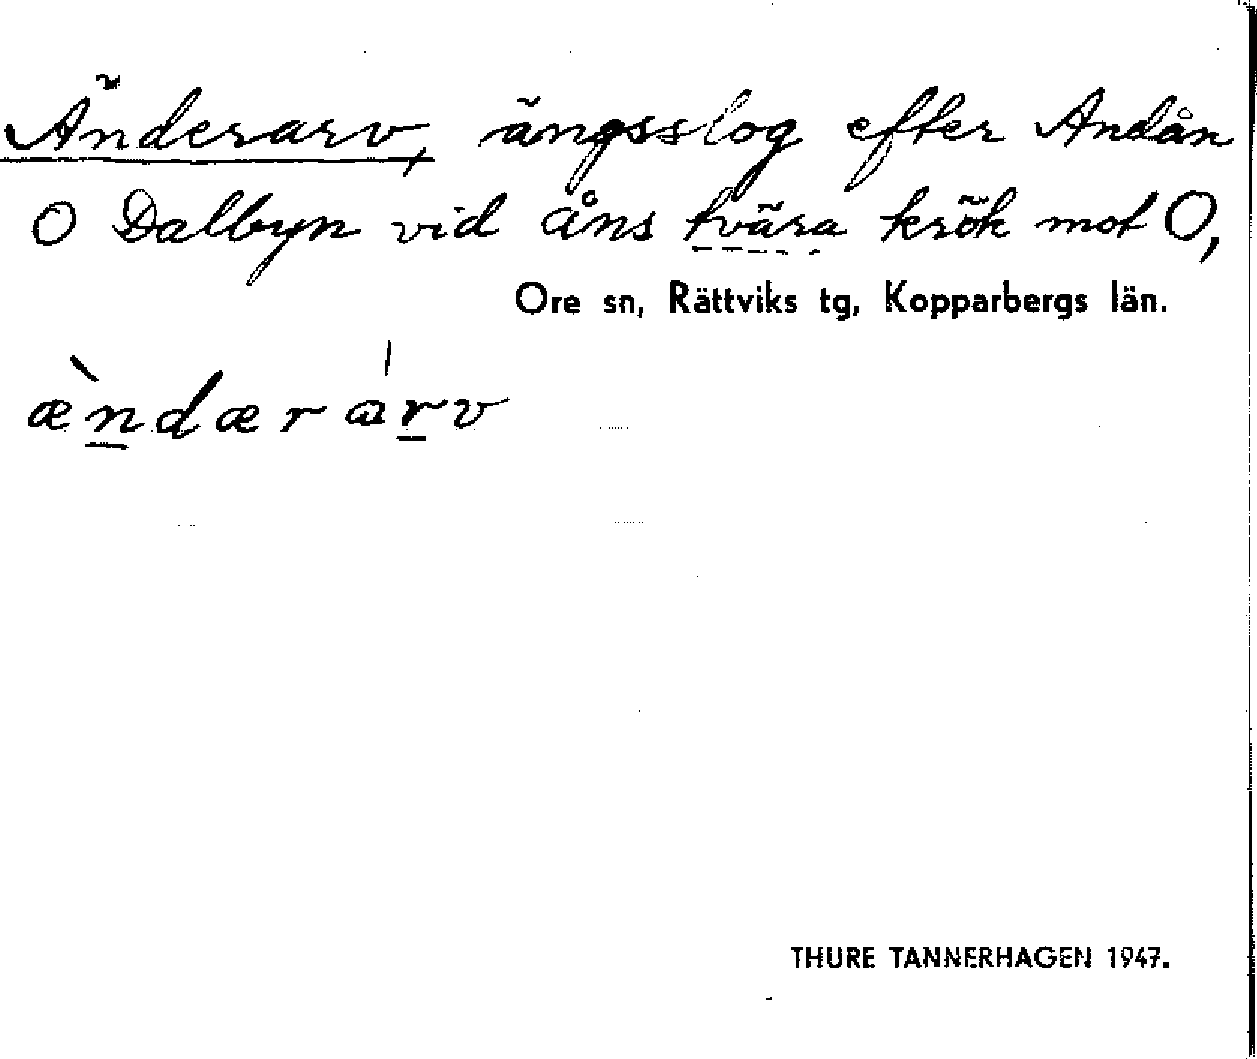 Änderarv, ängsslog efter Andån
O Dalbyn vid åns tvära krök mot O,
Ore sn, Rättviks tg, Kopparbergs län.
æ̀ndærárv
THURE TANNERHAGEN 1947.